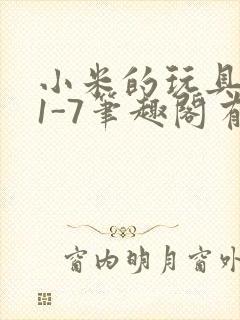 小米的玩具
1-7筆趣閣有
窗内明月窗外